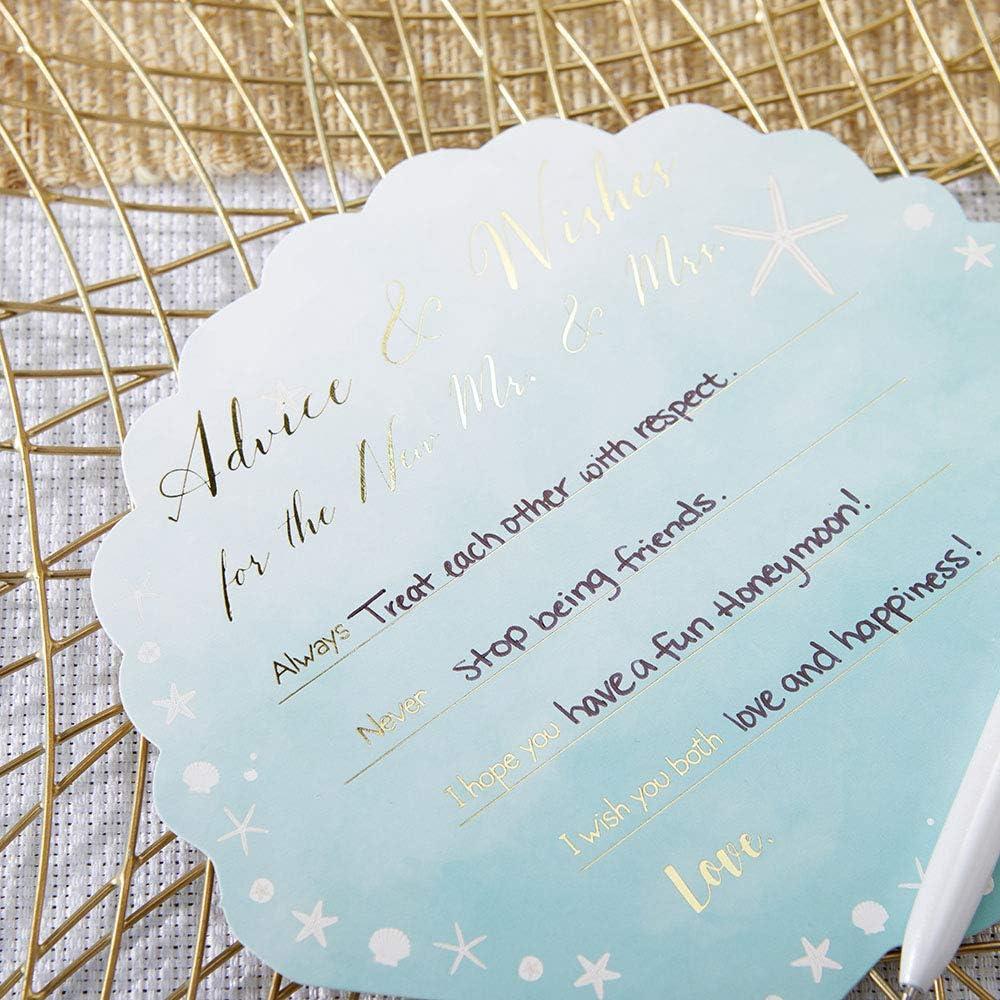 Advice & Wishes
for the New Mr. & Mrs.
Always Treat each other with respect.
Never stop being friends.
I hope you have a fun Honeymoon!
I wish you both love and happiness!
Love,